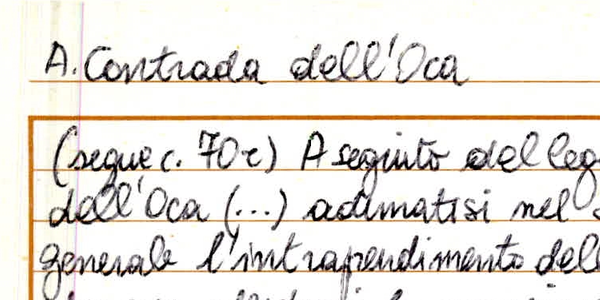 A. Contrada dell'Oca
(segue c. 70r) A seguito del leg
dell'Oca (...) adunatisi nel
generale l'intraprendimento dell